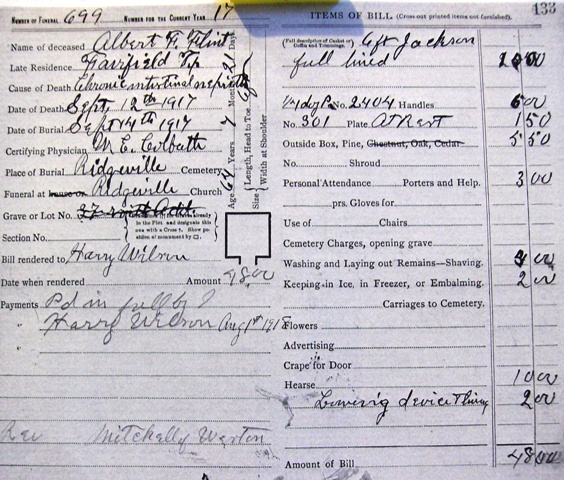 NUMBER OF FUNERAL 699 NUMBER FOR THE CURRENT YEAR 17
Name of deceased Albert F. Flint
Late Residence Fairfield Tp
Cause of Death Chronic intertinal nephritis
Date of Death Sept. 12th 1917
Date of Burial Sept 14th 1917
Certifying Physician M. E. Colbath
Place of Burial Ridgeville Cemetery
Funeral at house or Ridgeville Church
Grave or Lot No.
already in the Plot and designate this one with a Cross †. Show position of monument by □.
Section No.
Bill rendered to Harry Wilson
Date when rendered Amount 48.00
Payments Pd in full by
" Harry Wilson Aug 1st 1918
"
Rev Mitchelly Warton
Age 64 Years 7 Months 21 Days
Size { Length, Head to Toe 6/ Width at Shoulder
133
ITEMS OF BILL (Cross out printed items not furnished).
(Full description of Casket or Coffin and Trimmings. 6ft Jackson
full lined
No. 2404 Handles 6 00
No. 301 Plate At Rest 1 50
Outside Box, Pine, Chestnut, Oak, Cedar 5 50
No. Shroud
Personal Attendance Porters and Help. 3 00
prs. Gloves for
Use of Chairs
Cemetery Charges, opening grave
Washing and Laying out Remains—Shaving. 00
Keeping in Ice, in Freezer, or Embalming. 2 00
Carriages to Cemetery.
Flowers
Advertising
Crape for Door
Hearse 10 00
Lowering device 2 00
Amount of Bill 48 00